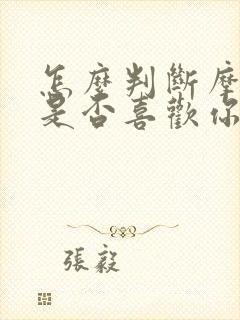 怎麼判斷摩
是否喜歡你
張毅